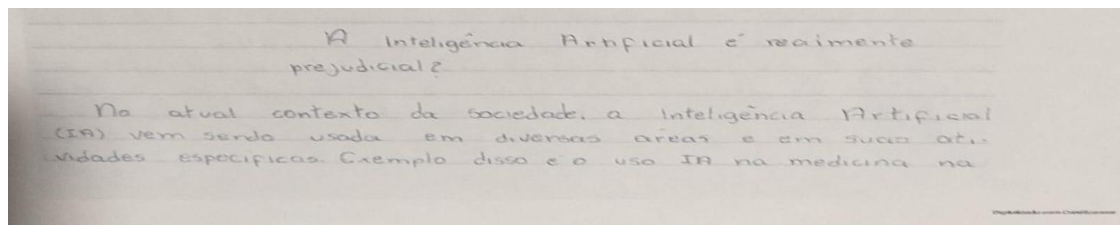 A Inteligência Artificial é realmente
prejudicial?
No atual contexto da sociedade, a Inteligência Artificial
(IA) vem sendo usada em diversas áreas e em suas ati-
vidades especificas. Exemplo disso é o uso IA na medicina na